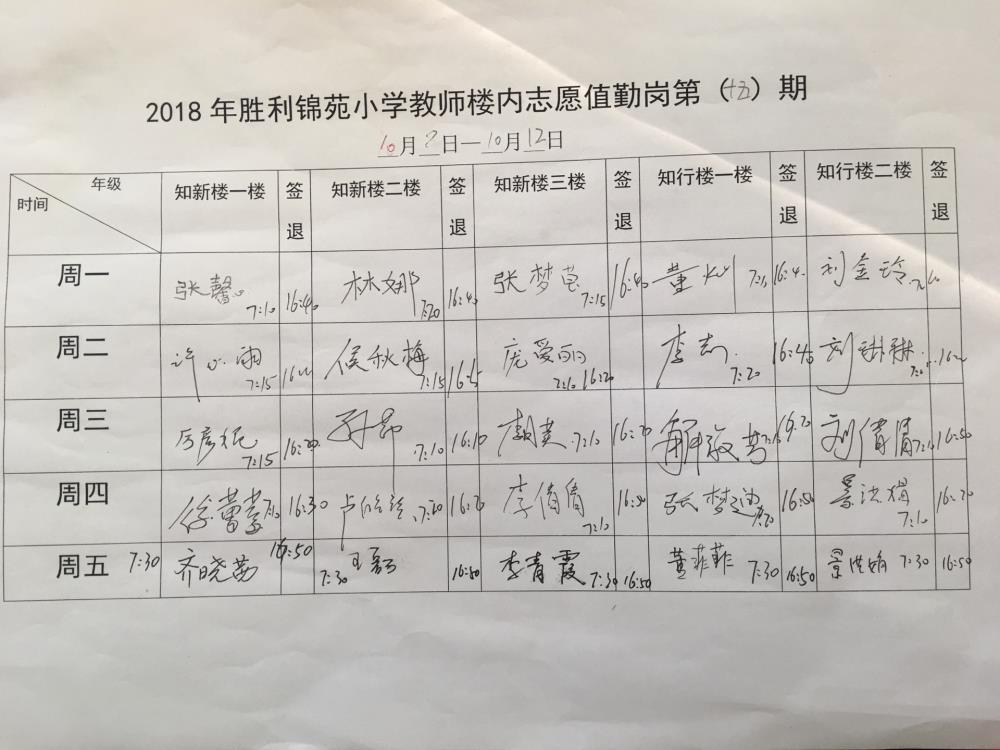 2018年胜利锦苑小学教师楼内志愿值勤岗第（十五）期
10月8日—10月12日
年级 时间 知新楼一楼 签退 知新楼二楼 签退 知新楼三楼 签退 知行楼一楼 签退 知行楼二楼 签退
周一 张馨心 7:10 16:40 林娜 7:20 16:40 张梦莹 7:15 16:40 董 16:4 金玲
周二 许心雨 7:15 侯秋梅 7:15 庞爱丽 7:10 16:20 李 7:20 16:45 刘琳琳
周三 7:15 16:20 孙昂 7:10 16:10 7:10 16:20 解 刘倩倩 7:10 16:50
周四 徐蕾蕾 7:10 16:30 卢 7:20 16:20 李倩倩 7:10 张梦迪 7:20 16:50 景洪娟 7:10 16:20
周五 7:30 齐晓茜 16:50 王磊 7:30 16:50 李青霞 7:30 16:50 董菲菲 7:30 16:50 景洪娟 7:30 16:50